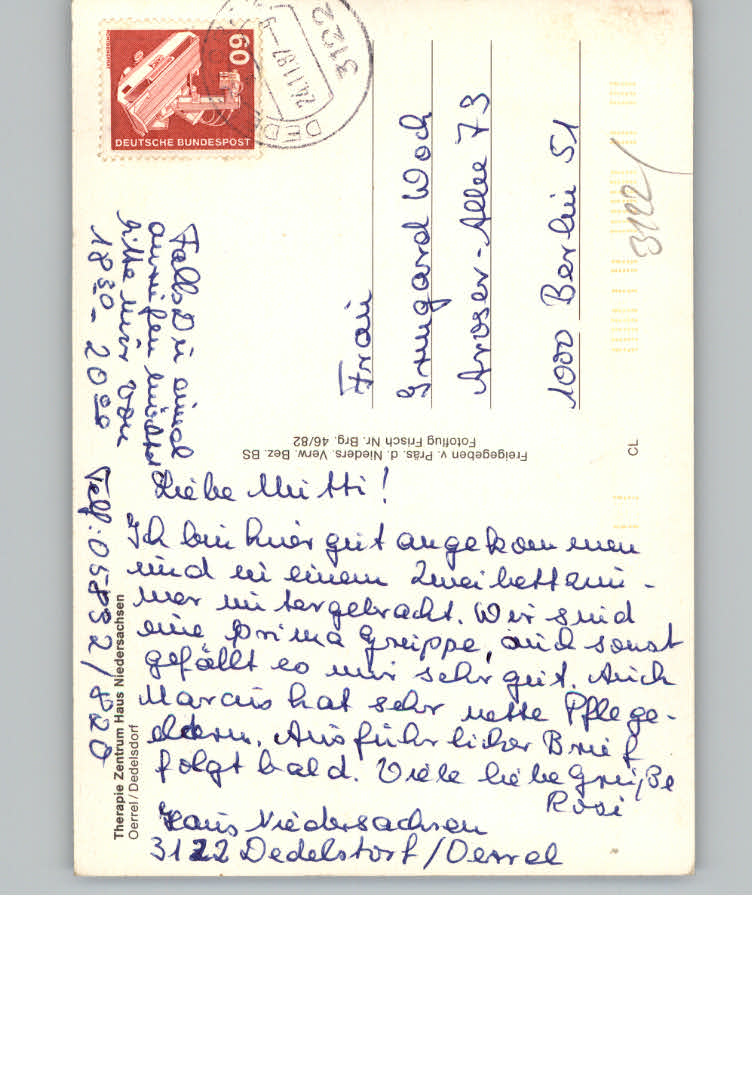 Liebe Mutti!
Ich bin hier gut angekommen
und in einem Zweibettzim-
mer untergebracht. Wir sind
eine prima Gruppe, auch sonst
gefällt es mir sehr gut. Auch
Marcus hat sehr nette Pflege-
eltern. Ausführlicher Brief
folgt bald. Viele liebe Grüße
Rosi
Haus Niedersachsen
3122 Dedelstorf/Oerrel
Falls Du einmal
anrufen möchtest
bitte nur von
18 30 - 20 00 Telf: 05832/820
Frau
Irmgard Woch
Aroser-Allee 73
1000 Berlin 51
3122
60
DEUTSCHE BUNDESPOST
3122
24.11.87
Therapie Zentrum Haus Niedersachsen
Oerrel/Dedelsdorf
Freigegeben v. Präs. d. Nieders. Verw. Bez. BS
Fotoflug Frisch Nr. Brg. 46/82
CL